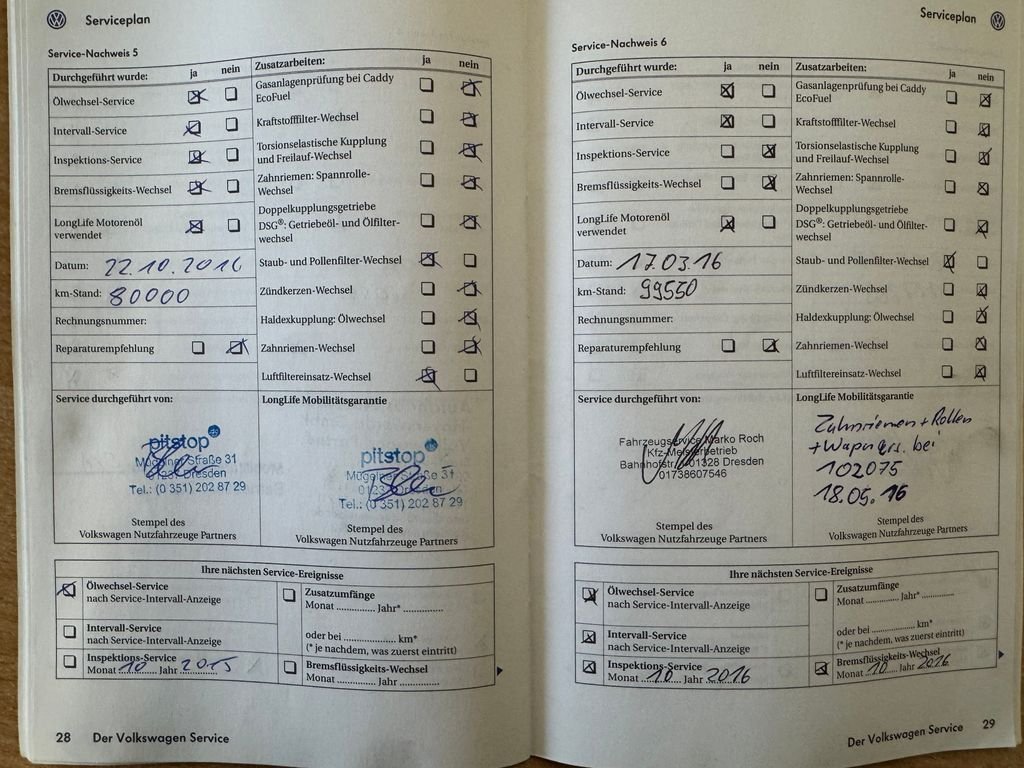 Serviceplan
Service-Nachweis 5
Durchgeführt wurde: ja nein
Ölwechsel-Service
Intervall-Service
Inspektions-Service
Bremsflüssigkeits-Wechsel
LongLife Motorenöl
verwendet
Datum: 22.10.2014
km-Stand: 80000
Rechnungsnummer:
Reparaturempfehlung
Zusatzarbeiten: ja nein
Gasanlagenprüfung bei Caddy
EcoFuel
Kraftstofffilter-Wechsel
Torsionselastische Kupplung
und Freilauf-Wechsel
Zahnriemen: Spannrolle-
Wechsel
Doppelkupplungsgetriebe
DSG®: Getriebeöl- und Ölfilter-
wechsel
Staub- und Pollenfilter-Wechsel
Zündkerzen-Wechsel
Haldexkupplung: Ölwechsel
Zahnriemen-Wechsel
Luftfiltereinsatz-Wechsel
Service durchgeführt von:
pitstop
Mügelner Straße 31
01237 Dresden
Tel.: (0 351) 202 87 29
Stempel des
Volkswagen Nutzfahrzeuge Partners
LongLife Mobilitätsgarantie
pitstop
Mügelner Straße 31
01237 Dresden
Tel.: (0 351) 202 87 29
Stempel des
Volkswagen Nutzfahrzeuge Partners
Ihre nächsten Service-Ereignisse
Ölwechsel-Service
nach Service-Intervall-Anzeige
Intervall-Service
nach Service-Intervall-Anzeige
Inspektions-Service
Monat 10 Jahr 2015
Zusatzumfänge
Monat ............... Jahr* ...............
oder bei .................... km*
(* je nachdem, was zuerst eintritt)
Bremsflüssigkeits-Wechsel
Monat ............... Jahr ...............
28 Der Volkswagen Service
Serviceplan
Service-Nachweis 6
Durchgeführt wurde: ja nein
Ölwechsel-Service
Intervall-Service
Inspektions-Service
Bremsflüssigkeits-Wechsel
LongLife Motorenöl
verwendet
Datum: 17.03.16
km-Stand: 99550
Rechnungsnummer:
Reparaturempfehlung
Zusatzarbeiten: ja nein
Gasanlagenprüfung bei Caddy
EcoFuel
Kraftstofffilter-Wechsel
Torsionselastische Kupplung
und Freilauf-Wechsel
Zahnriemen: Spannrolle-
Wechsel
Doppelkupplungsgetriebe
DSG®: Getriebeöl- und Ölfilter-
wechsel
Staub- und Pollenfilter-Wechsel
Zündkerzen-Wechsel
Haldexkupplung: Ölwechsel
Zahnriemen-Wechsel
Luftfiltereinsatz-Wechsel
Service durchgeführt von:
Fahrzeugservice Marko Roch
Kfz-Meisterbetrieb
Bahnhofstr. 01328 Dresden
01738607546
Stempel des
Volkswagen Nutzfahrzeuge Partners
LongLife Mobilitätsgarantie
Zahnriemen + Rollen
+ bei
102075
18.05.16
Stempel des
Volkswagen Nutzfahrzeuge Partners
Ihre nächsten Service-Ereignisse
Ölwechsel-Service
nach Service-Intervall-Anzeige
Intervall-Service
nach Service-Intervall-Anzeige
Inspektions-Service
Monat 10 Jahr 2016
Zusatzumfänge
Monat ............... Jahr* ...............
oder bei .................... km*
(* je nachdem, was zuerst eintritt)
Bremsflüssigkeits-Wechsel
Monat 10 Jahr 2016
Der Volkswagen Service 29